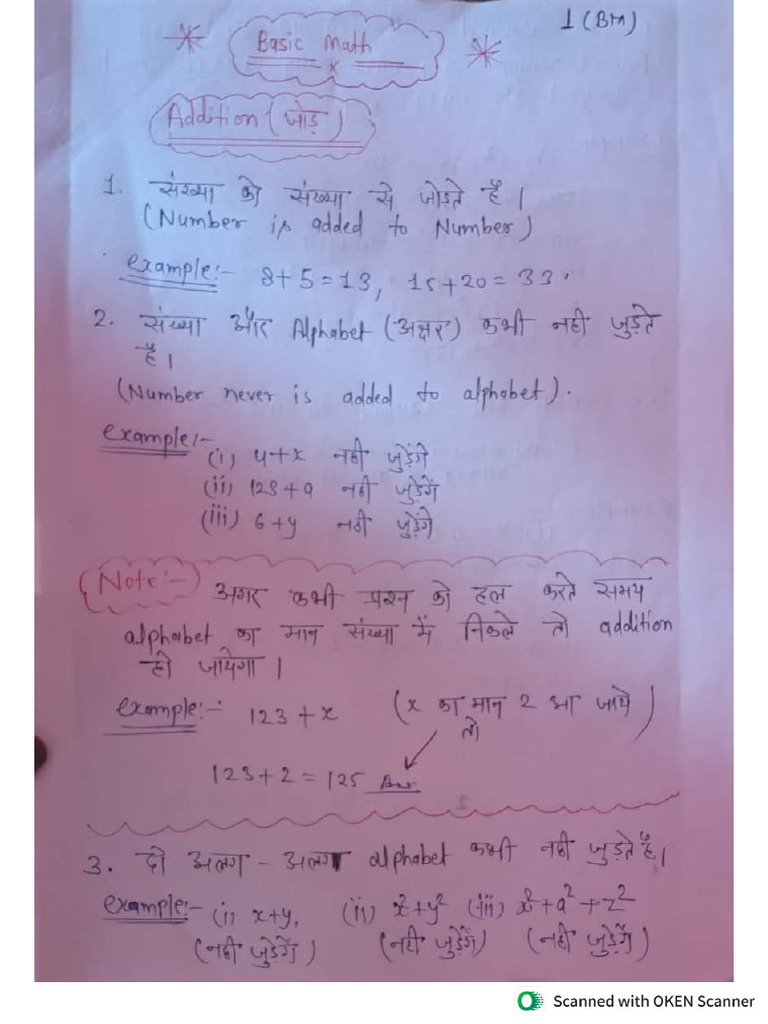 1 (BM)
Basic Math
Addition (जोड़)
1. संख्या को संख्या से जोड़ते है।
(Number is added to Number)
example:- 8+5=13, 15+20=33.
2. संख्या और Alphabet (अक्षर) कभी नही जुड़ते
है।
(Number never is added to alphabet).
example:-
(i) 4+x नही जुड़ेंगे
(ii) 123+a नही जुड़ेगें
(iii) 6+y नही जुड़ेंगे
Note:- अगर कभी प्रश्न को हल करते समय
alphabet का मान संख्या में निकले तो addition
हो जायेगा।
example:- 123+x (x का मान 2 आ जाये
तो)
123+2=125 Ans
3. दो अलग-अलग alphabet कभी नही जुड़ते है।
example:- (i) x+y, (ii) x²+y² (iii) x²+a²+z²
(नही जुड़ेगें) (नही जुड़ेगें) (नही जुड़ेगें)
Scanned with OKEN Scanner